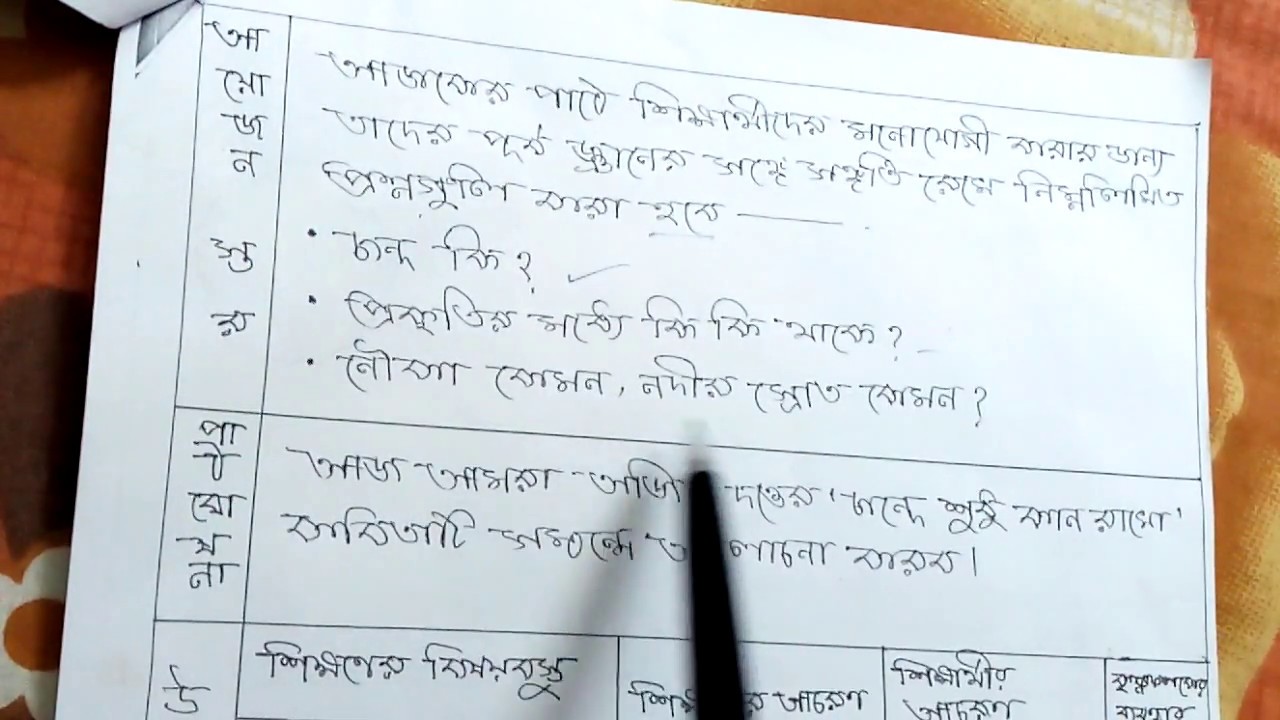 আয়োজন স্তর
আজকের পাঠে শিক্ষার্থীদের মনোযোগী করার জন্য
তাদের পূর্ব জ্ঞানের সঙ্গে সঙ্গতি রেখে নিম্নলিখিত
প্রশ্নগুলি করা হবে —
• ছন্দ কি?
• প্রকৃতির মধ্যে কি কি থাকে?
• নৌকা কেমন, নদীর স্রোত কেমন?
পাঠ ঘোষনা
আজ আমরা অজি দত্তের 'ছন্দে শুধু কান রাখো'
কবিতাটি সম্বন্ধে লোচনা করব।
উ
শিক্ষণের বিষয়বস্তু
আচরণ
শিক্ষার্থীর
আচরণ
ব্যবহার